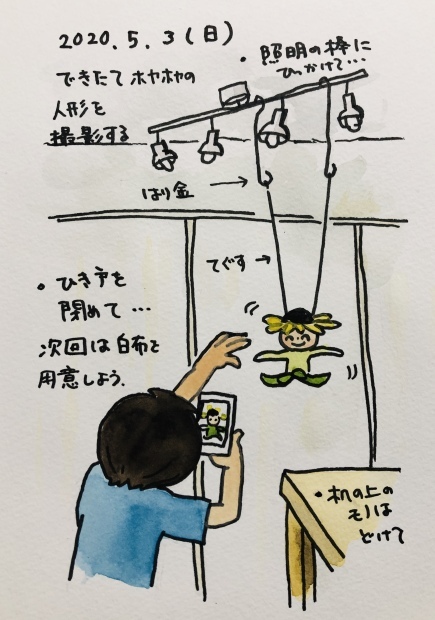 2020.5.3(日)
できたてホヤホヤの
人形を
撮影する
・照明の棒に
ひっかけて…
はり金
てぐす
・ひき戸を
閉めて…
次回は白布を
用意しよう.
・机の上の
モノは
どけて